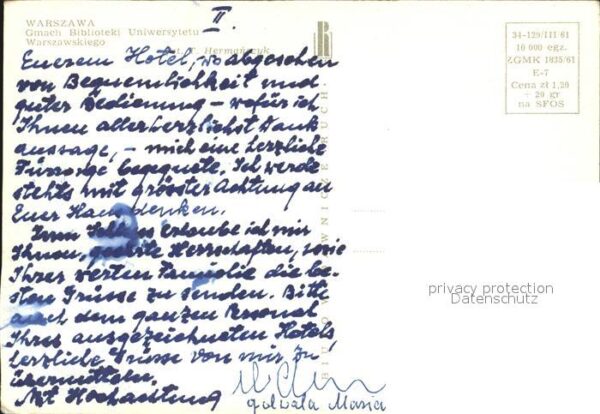 II
WARSZAWA
Gmach Biblioteki Uniwersytetu
Warszawskiego
Fot. T. Hermańczyk
Euerem Hotel, wo abgesehen
von Bequemlichkeit und
guter Bedienung – wofür ich
Ihnen allerherzlichst Dank
aussage, – mich eine herzliche
Fürsorge begegnete. Ich werde
stehts mit grösster Achtung an
Euer Haus denken.
Zum Schluss erlaube ich mir
Ihnen, geehrte Herrschaften, sowie
Ihrer werten Familie die be-
sten Grüsse zu senden. Bitte
auch dem ganzen Personal
Ihres ausgezeichneten Hotels
herzliche Grüsse von mir zu
übermitteln.
Mit Hochachtung
Maria
BIURO WYDAWNICZE RUCH
34-129/III 61
10 000 egz.
ZGMK 1835/61
E-7
Cena zł 1,20
+ 20 gr
na SFOS
privacy protection
Datenschutz